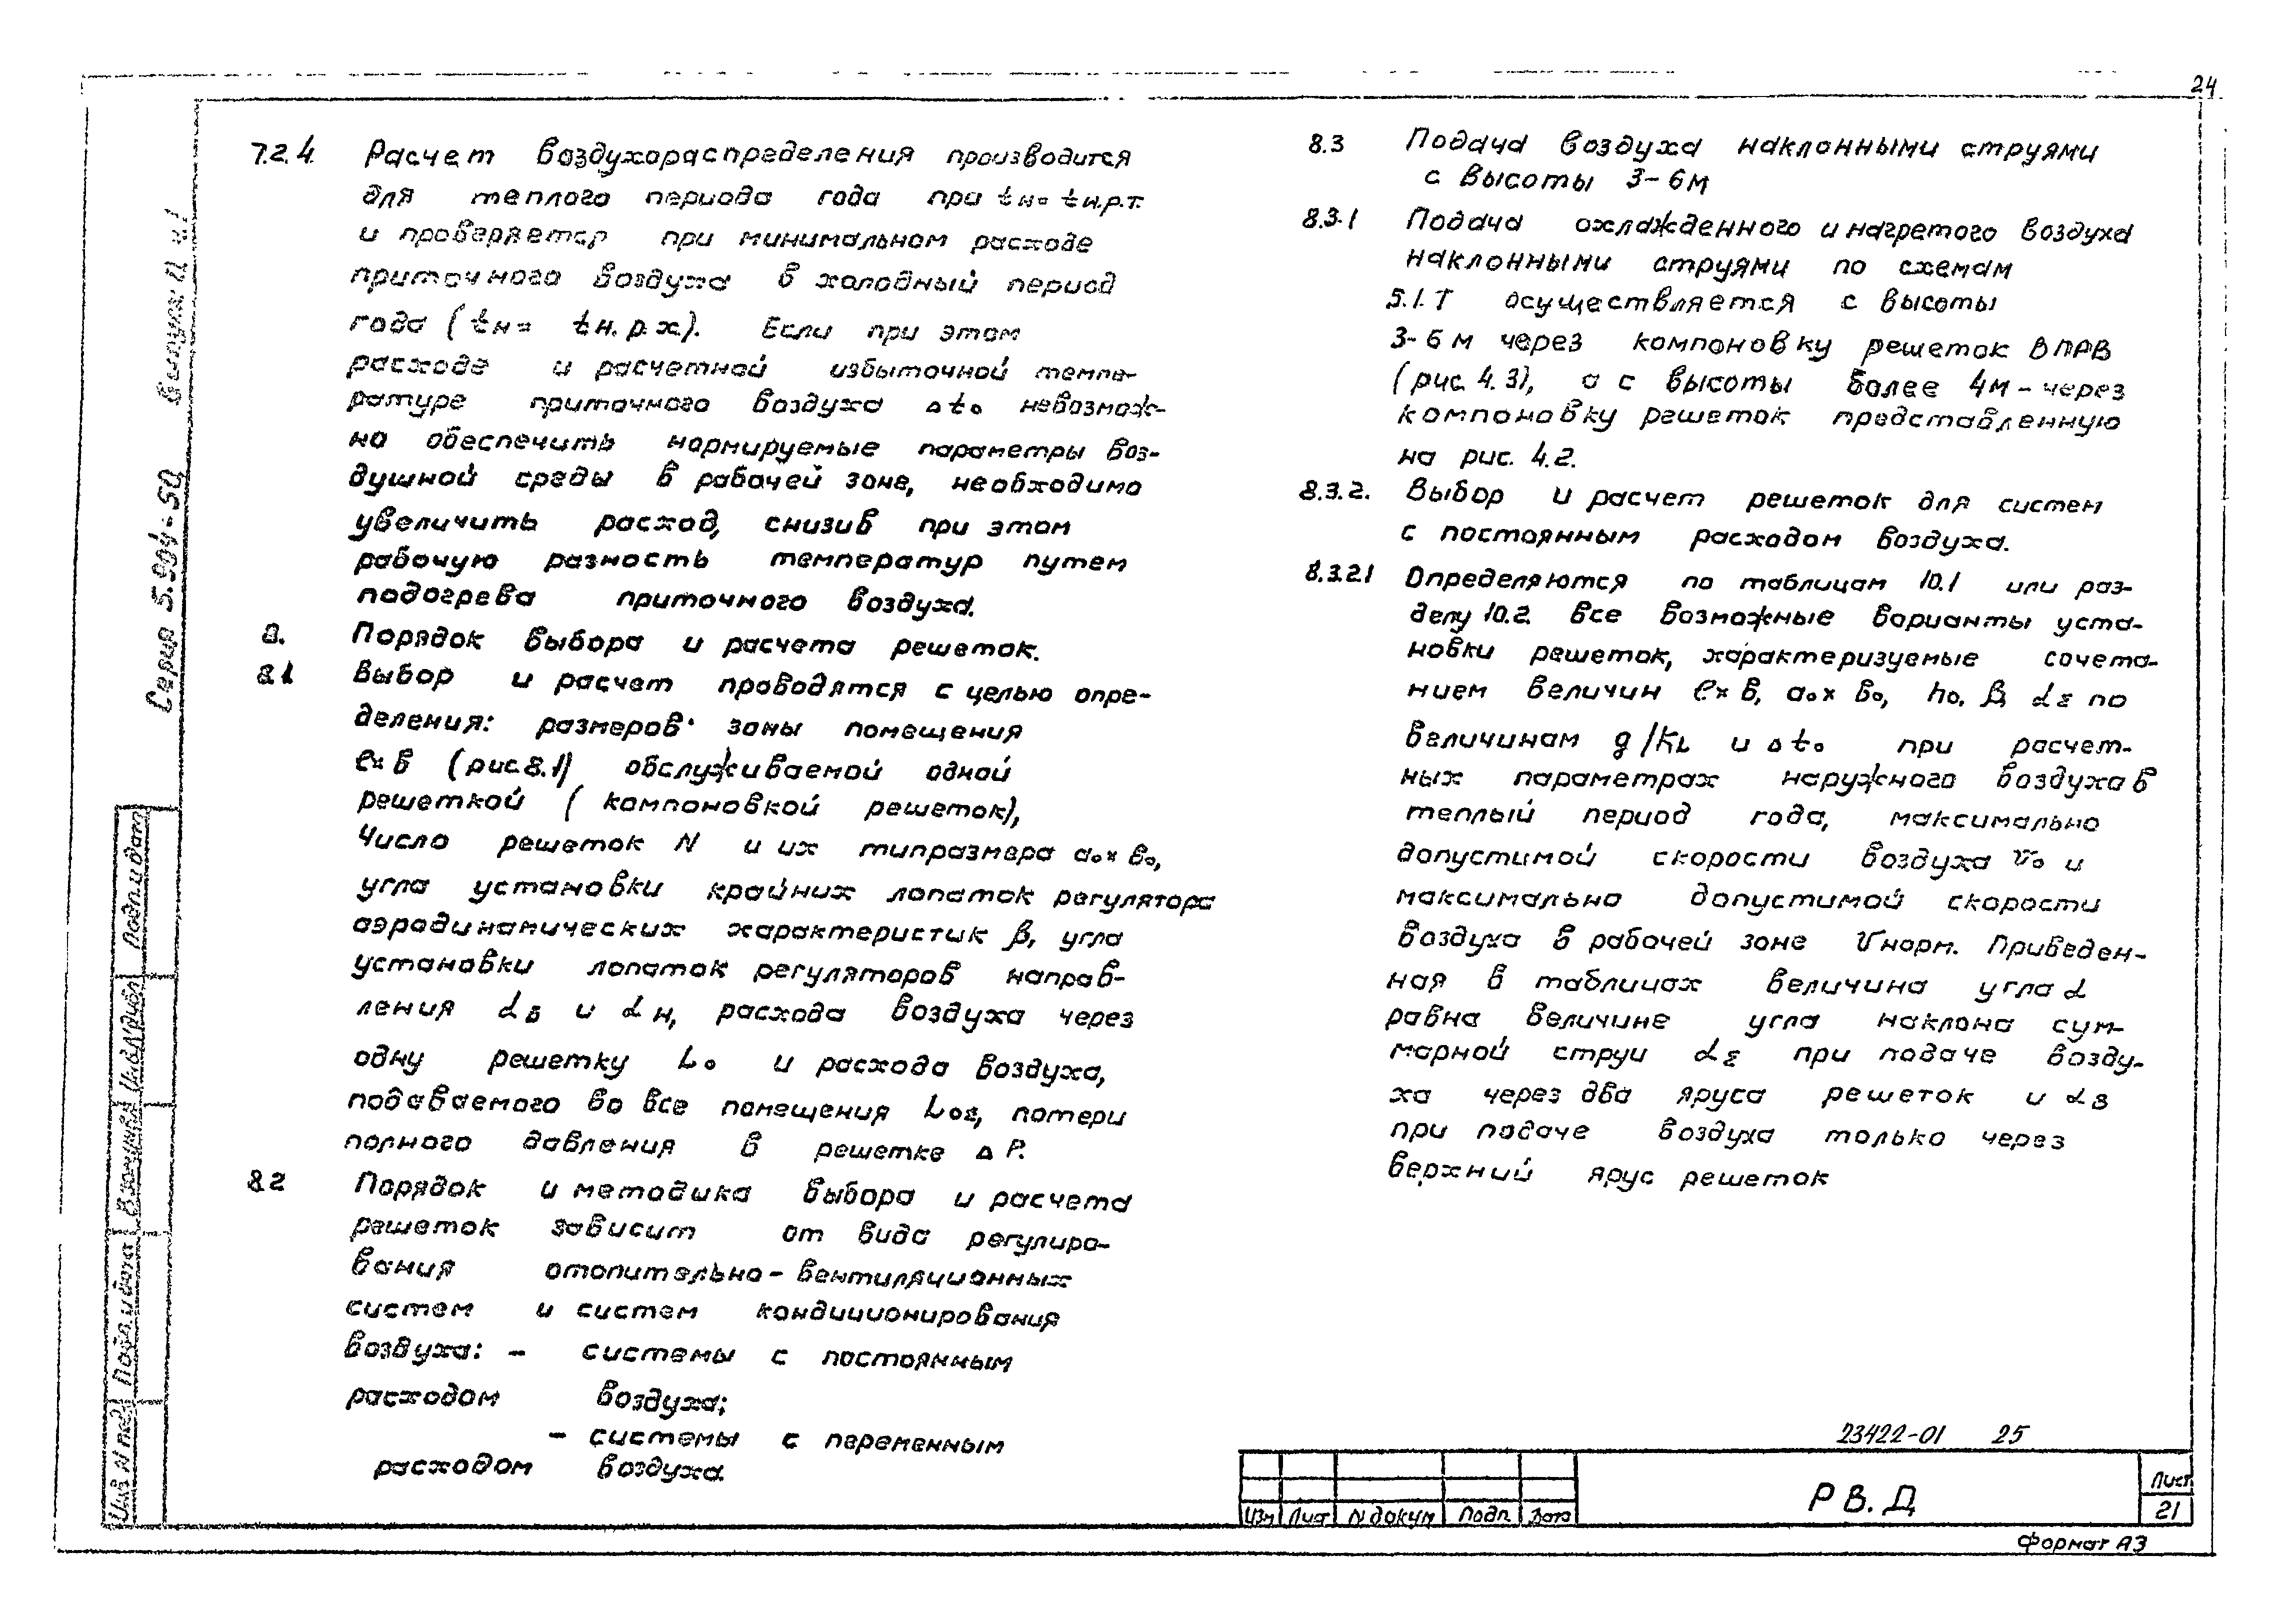 24
7.2.4. Расчет воздухораспределения производится
для теплого периода года при tн= tн.р.т.
и проверяется при минимальном расходе
приточного воздуха в холодный период
года (tн= tн.р.х.). Если при этом
расходе и расчетной избыточной темпе-
ратуре приточного воздуха Δt₀ невозмож-
но обеспечить нормируемые параметры воз-
душной среды в рабочей зоне, необходимо
увеличить расход, снизив при этом
рабочую разность температур путем
подогрева приточного воздуха.
8. Порядок выбора и расчета решеток.
8.1 Выбор и расчет проводятся с целью опре-
деления: размеров зоны помещения
ℓ×в (рис.8.1) обслуживаемой одной
решеткой ( компоновкой решеток),
Число решеток N и их типразмера а₀×в₀,
угла установки крайних лопаток регулятора
аэродинамических характеристик β, угла
установки лопаток регуляторов направ-
ления αв и αн, расхода воздуха через
одну решетку L₀ и расхода воздуха,
подаваемого во все помещения L₀Σ, потери
полного давления в решетке ΔР.
8.2 Порядок и методика выбора и расчета
решеток зависит от вида регулиро-
вания отопительно-вентиляционных
систем и систем кондиционирования
воздуха: - системы с постоянным
расходом воздуха;
- системы с переменным
расходом воздуха.
8.3 Подача воздуха наклонными струями
с высоты 3-6м
8.3.1 Подача охлажденного и нагретого воздуха
наклонными струями по схемам
5.1.Т осуществляется с высоты
3-6м через компоновку решеток ВПРВ
(рис.4.3), а с высоты более 4м-через
компоновку решеток представленную
на рис. 4.2.
8.3.2. Выбор и расчет решеток для систем
с постоянным расходом воздуха.
8.3.2.1 Определяются по таблицам 10.1 или раз-
делу 10.2. все возможные варианты уста-
новки решеток, характеризуемые сочета-
нием величин ℓ×в, а₀×в₀, h₀, β, αΣ по
величинам g/КL и Δt₀ при расчет-
ных параметрах наружного воздуха в
теплый период года, максимально
допустимой скорости воздуха V₀ и
максимально допустимой скорости
воздуха в рабочей зоне Vнорм. Приведен-
ная в таблицах величина угла α
равна величине угла наклона сум-
марной струи αΣ при подаче возду-
ха через два яруса решеток и αв
при подаче воздуха только через
верхний ярус решеток
Серия 5.904-50 Выпуск 0 ч.1
Подп.и дата
Инв.№дубл
Взам.инв.№
Подп. и дата
Инв.№ подл
23422-01 25
Изм Лист № докум Подп. Дата
РВ.Д
Лист
21
Формат А3